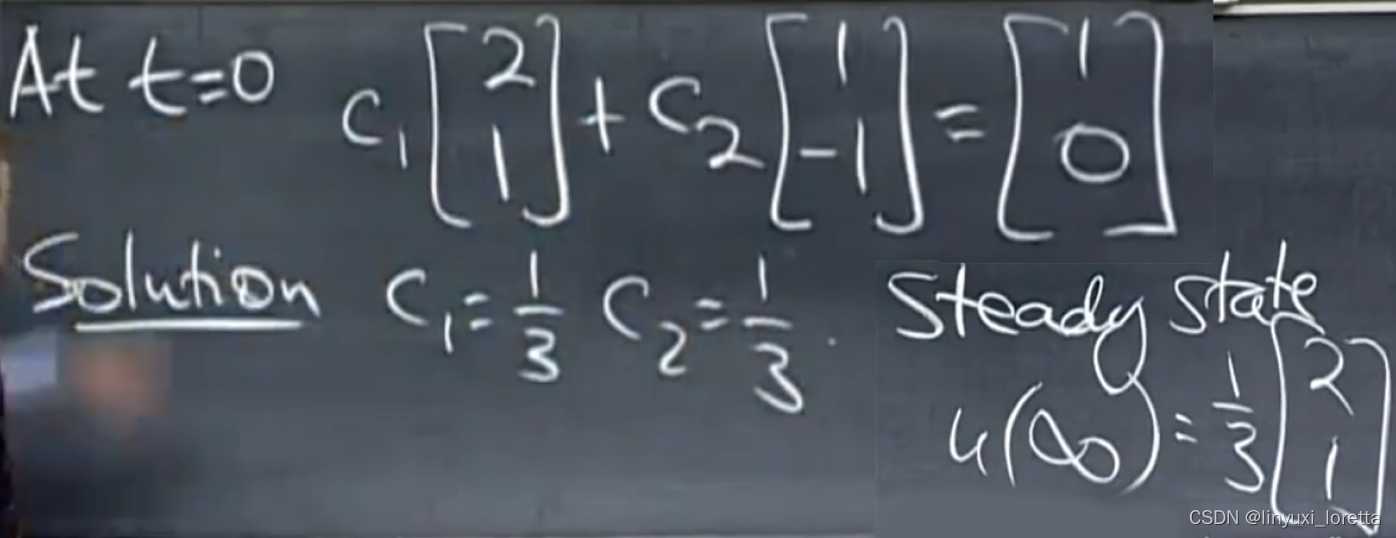 At t=0 c₁ [2 1] + c₂ [1 -1] = [1 0]
Solution c₁ = 1/3 c₂ = 1/3.
Steady state
u(∞) = 1/3 [2 1]
CSDN @linyuxi_loretta